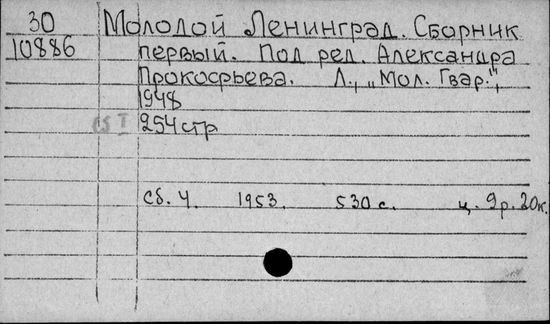 30 Молодой Ленинград. Сборник
10886 первый. Под ред. Александра
Прокофьева. Л., „Мол. Гвар.",
1948
254 стр
сб. 4. 1953. 530 с. ц. 9р. 20к.